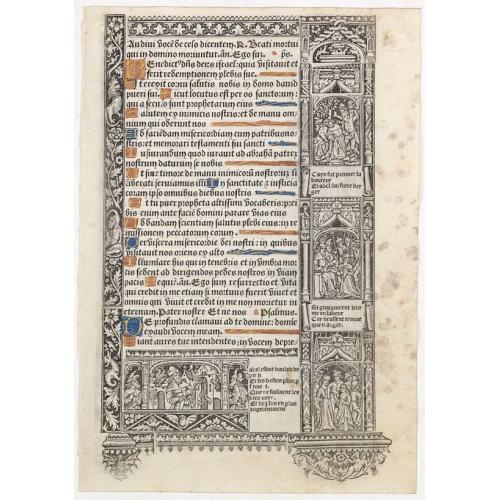 Audiui Vocē de celo dicentem. R. Beati mortui
qui in domino moriuntur. añ. Ego suz. ps.
Enedict9 dñs deus israel: quia visitauit et
fecit redemptionem plebis sue.
t erexit cornu salutis nobis in domo dauid
pueri sui. Sicut locutus est per os sanctorum:
qui a seculo sunt prophetarum eius
alutem ex inimicis nostris: et de manu om
nium qui oderunt nos
d faciendam misericordiam cum patribus no-
stris: et memorari testamenti sui sancti
usiurandum quod iurauit ad abrahā patrez
nostrum daturum se nobis
t sine timore de manu inimicorū nostroruz li
berati seruiamus illi In sanctitate et iusticia
coram ipso omnibus diebus nostris
t tu puer propheta altissimi Vocaberis: prei
bis enim ante faciē domini parare vias eius
d dandam scientiam salutis plebi eius: in re
missionem peccatorum eorum.
er viscera misericordie dei nostri: in quibus
visitauit nos oriens ex alto
lluminare his qui in tenebris et in vmbra mor
tis sedent ad dirigendos pedes nostros in viam
pacis Requi? añ. Ego sum resurrectio et vita
qui credit in me etiam si mortuus fuerit viuet et
omnis qui viuit et credit in me non morietur in
eternum. Pater noster Et ne nos Psalmus.
E profundis clamaui ad te domine: domie
exaudi vocem meam.
iant aures tue intendentes: in vocem depre-
Cayn fut premier la
boureur
Et abel son frere ber
ger
Si gaignoient leur
vie en labeur
Car neussent trouue
que manger.
abel estoit
Et ses bestes plus
Que ne faisoient les
Et
augmentoient